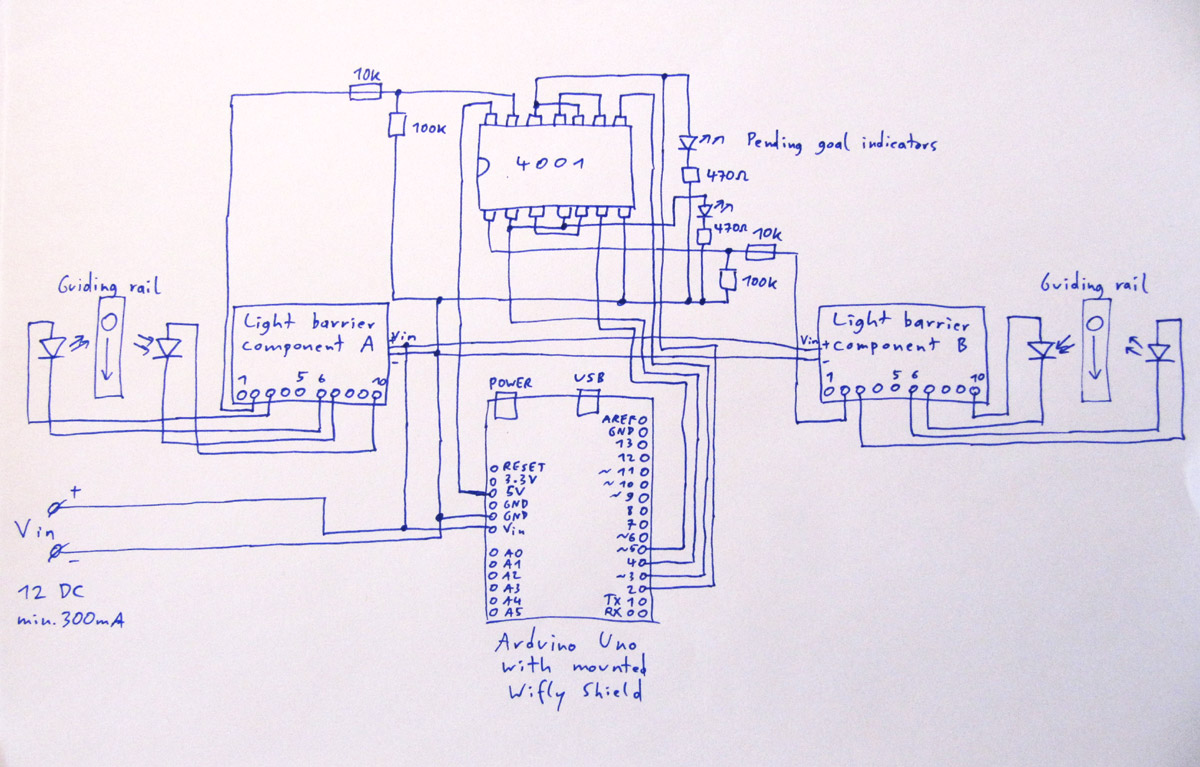 10k
100k
4001
Pending goal indicators
470Ω
470Ω
10k
100k
Guiding rail
Light barrier
component A
Vin
+
-
1 5 6 10
Light barrier
component B
Vin
+
-
1 5 6 10
Guiding rail
POWER
USB
AREF
GND
13
12
~11
~10
~9
8
7
~6
~5
4
~3
2
TX 1
RX 0
RESET
3.3V
5V
GND
GND
Vin
A0
A1
A2
A3
A4
A5
+
Vin
-
12 DC
min. 300mA
Arduino Uno
with mounted
Wifly Shield